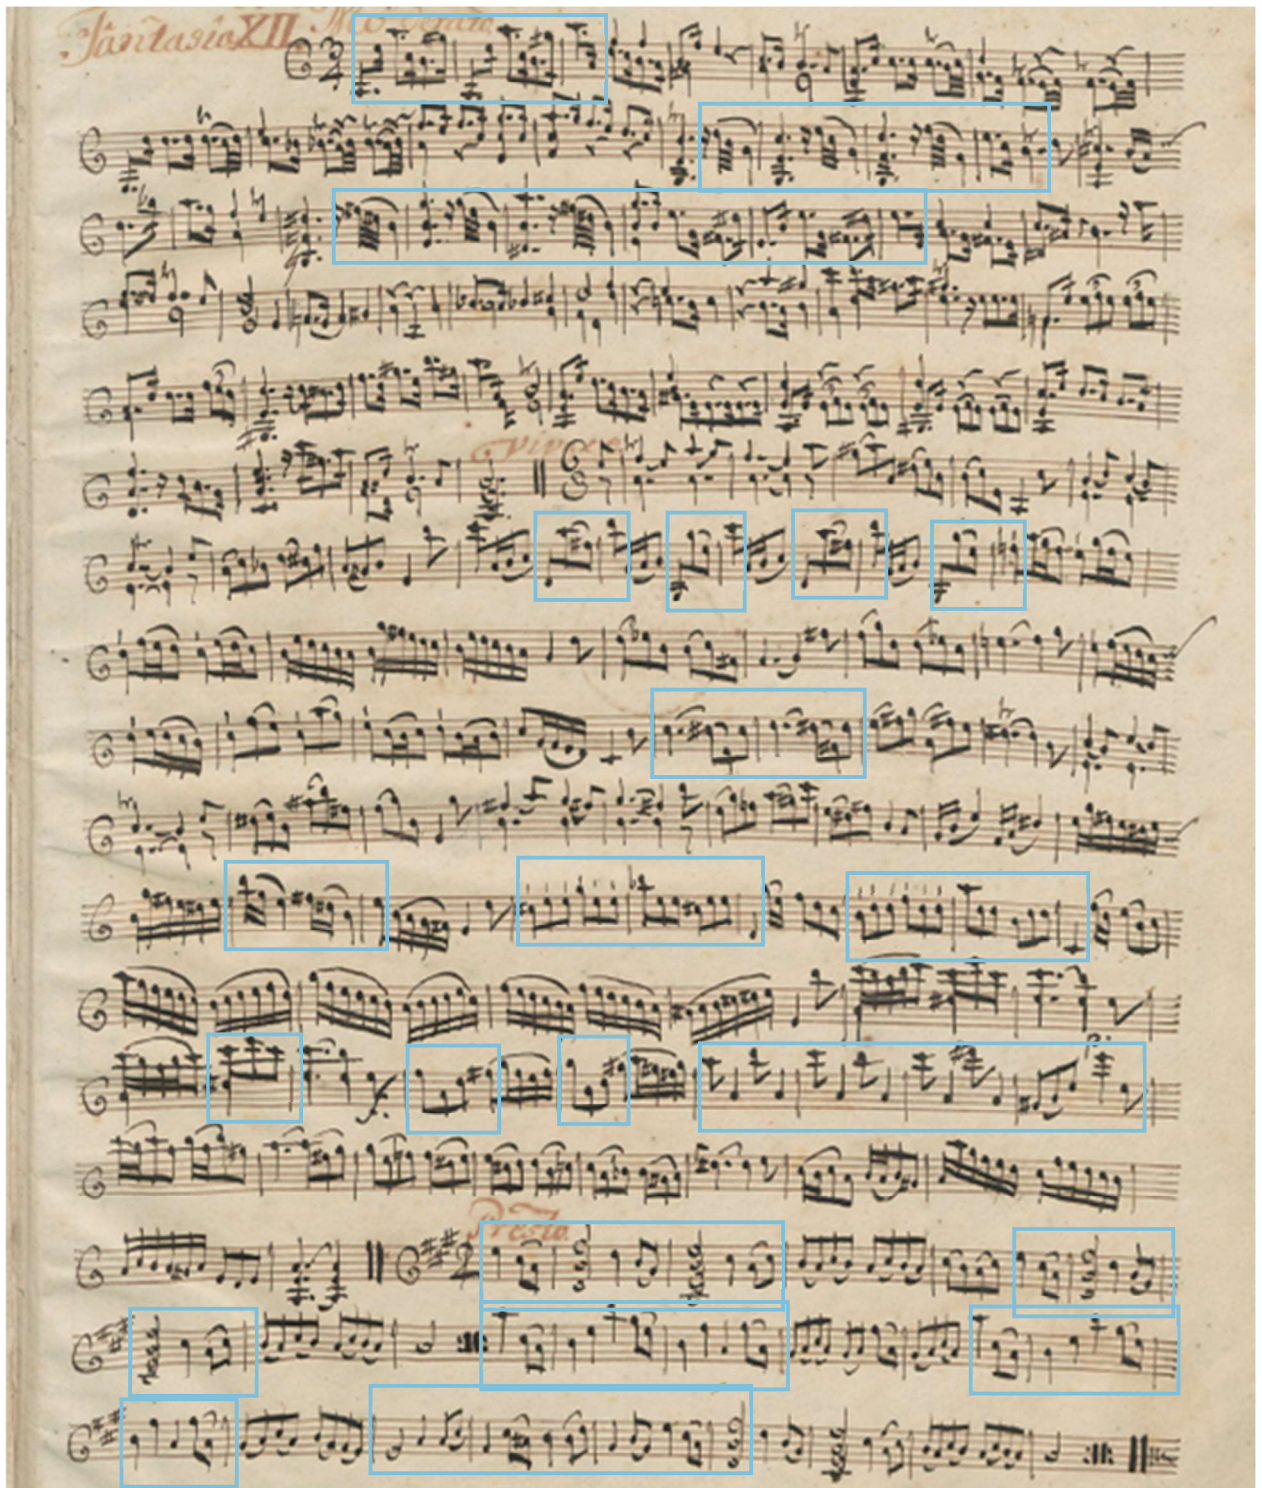 Fantasia XII. Moderato
Vivace
Presto.